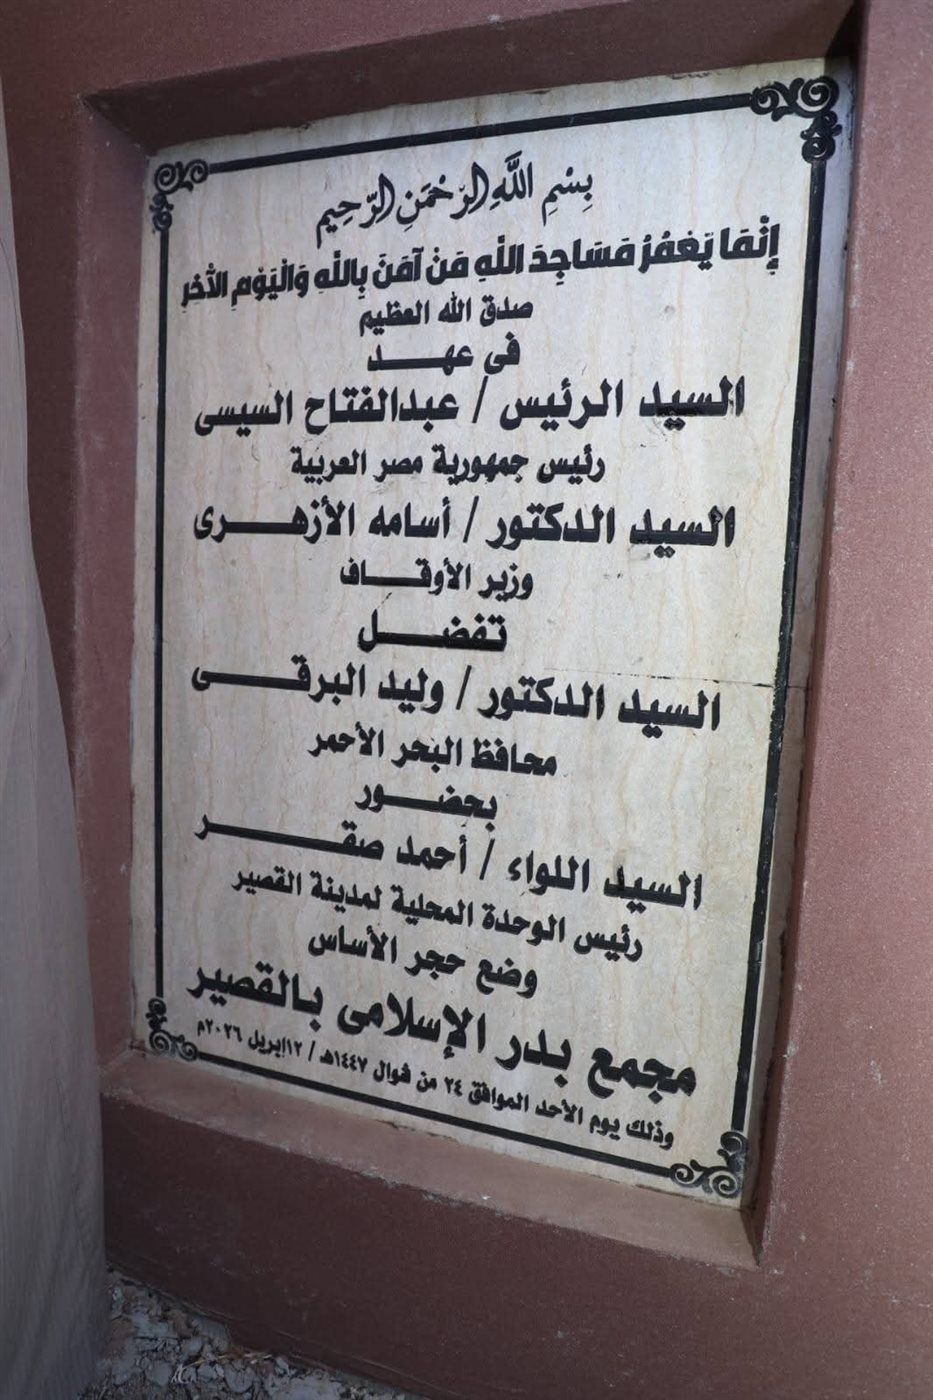 بِسْمِ اللَّهِ الرَّحْمَنِ الرَّحِيمِ
إِنَّمَا يَعْمُرُ مَسَاجِدَ اللَّهِ مَنْ آمَنَ بِاللَّهِ وَالْيَوْمِ الْآخِرِ
صدق الله العظيم
فى عهد
السيد الرئيس / عبدالفتاح السيسى
رئيس جمهورية مصر العربية
السيد الدكتور / أسامه الأزهرى
وزير الأوقاف
تفضل
السيد الدكتور / وليد البرقى
محافظ البحر الأحمر
بحضور
السيد اللواء / أحمد صقر
رئيس الوحدة المحلية لمدينة القصير
وضع حجر الأساس
مجمع بدر الإسلامى بالقصير
وذلك يوم الأحد الموافق ٢٤ من شوال ١٤٤٧هـ / ١٢إبريل ٢٠٢٦م